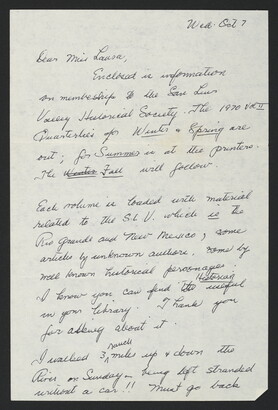 Wed. Oct 7
Dear Miss Laura,
Enclosed is information
on membership to the San Luis
Valley Historical Society. The 1970 Vol II
Quarterlies for Winter & Spring are
out; for Summer is at the printers.
The Winter Fall will follow.
Each volume is loaded with material
related to the S.L.V. which is the
Rio Grande and New Mexico; some
articles by unknown authors, some by
well known historical personages.
I know you can find the Historian useful
in your library. Thank you
for asking about it.
I walked 3 rough miles up & down the
River on Sunday - being left stranded
without a car!! Must go back